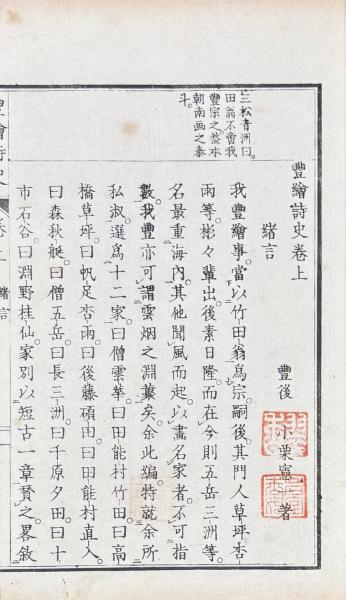 三松青洲曰。
田翁不啻我
豐宗之。蓋本
朝南画之泰
斗。
豐繪詩史卷上
豐後 小栗憲一著
緒言
我豐繪事。當以竹田翁爲宗。嗣後其門人草坪杏
雨等。彬々輩出。後素日隆。而在今則五岳三洲等。
名最重海內。其他聞風而起。以畫名家者。不可指
數。我豐亦可謂雲烟之淵藪矣。余此編。特就余所
私淑。選爲十二家。曰僧雲華。曰田能村竹田。曰高
橋草坪。曰帆足杏雨。曰後藤碩田。曰田能村直入。
曰森秋艇。曰僧五岳。曰長三洲。曰千原夕田。曰十
市石谷。曰淵野桂仙。家別以短古一章。賛之。畧敘
豐繪詩史 卷上 緒言